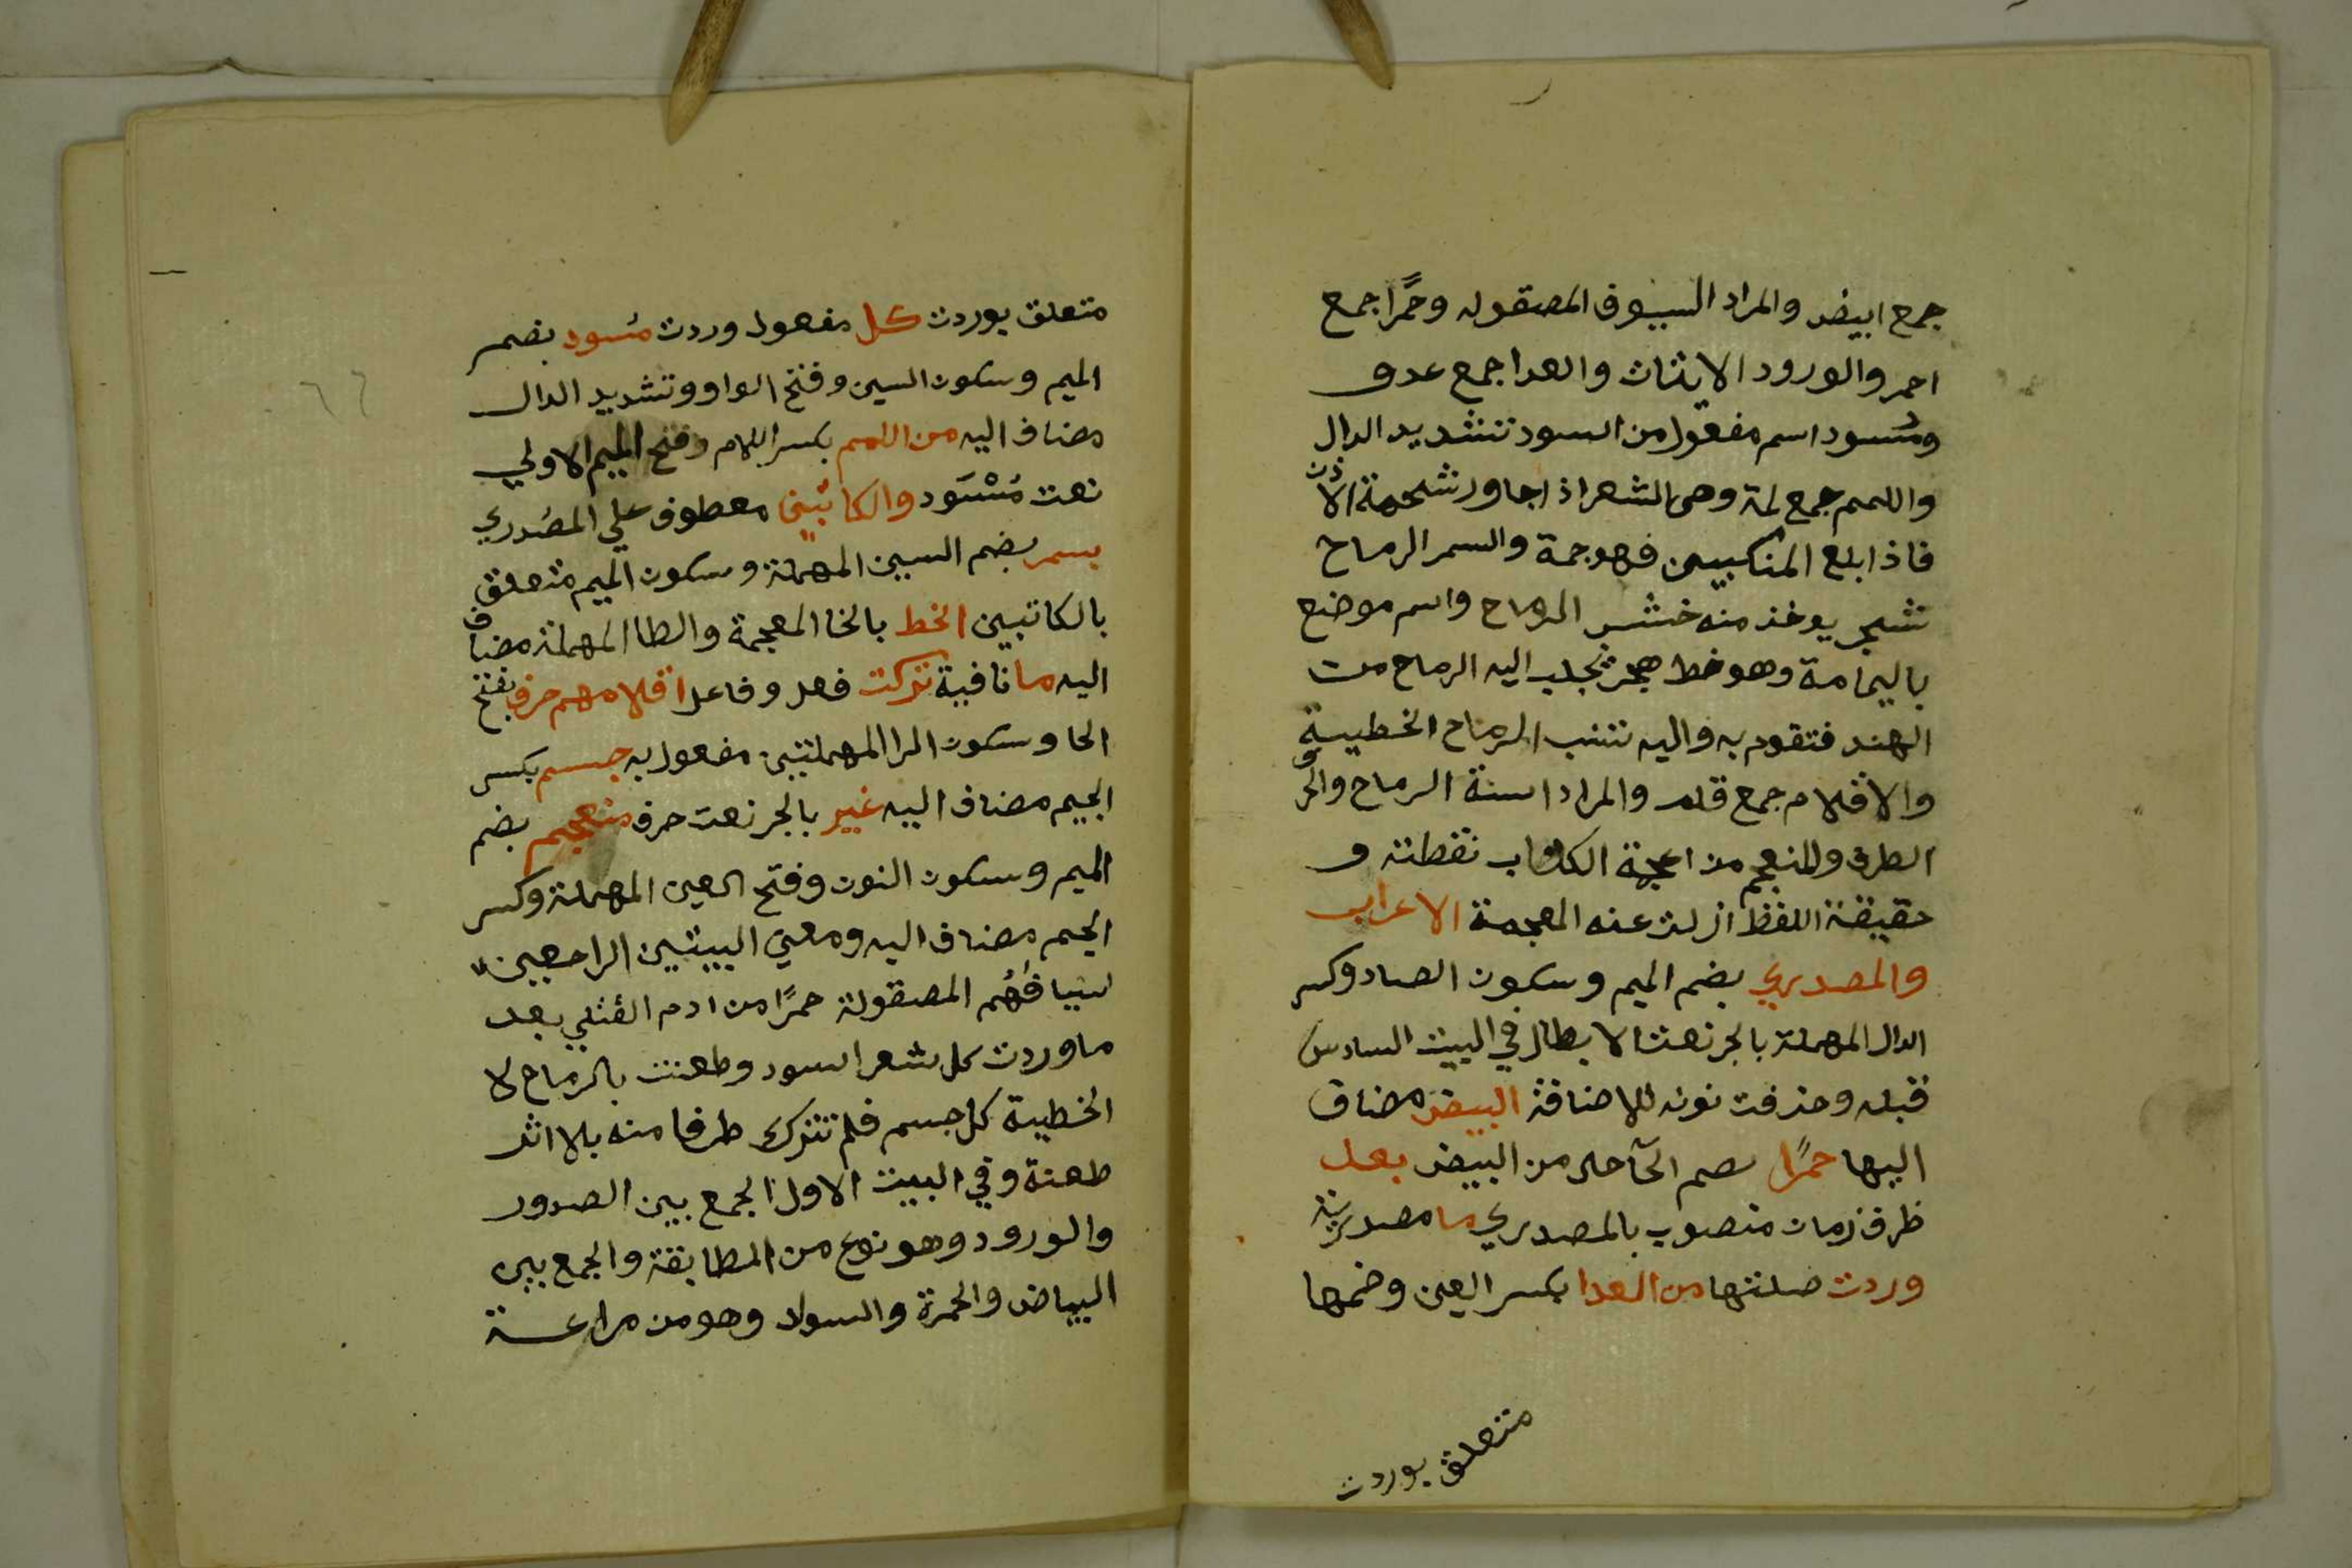 جمع ابيض والمراد السيوف المصقوله وحمرًا جمع
احمر والورود الاتيان والعدا جمع عدو
ومُسود اسم مفعول من اسود تشديد الدال
واللمم جمع لمة وهي الشعر اذا جاور شحمة الاذن
فاذا بلغ المنكبين فهو جمة والسمر الرماح
شجر يوخذ منه خشب الرماح واسم موضع
باليمامة وهو خط هجر تجلب اليه الرماح من
الهند فتقوم به واليه تنسب الرماح الخطية
والاقلام جمع قلم والمراد اسنة الرماح والحرف
الطرف والمنعجم من اعجمة الكتاب نقطته و
حقيقة اللفظ ازلت عنه المعجمة الاعراب
والمصدري بضم الميم وسكون الصاد وكسر
الدال المهملة بالجر نعت الابطال في البيت السادس
قبله وحذفت نونه للاضافة البيض مضاف
اليها حمرًا بضم الحآ حال من البيض بعد
ظرف زمان منصوب بالمصدري ما مصدرية
وردت صلتها من العدا بكسر العين وضمها
متعلق بوردت
متعلق بوردت كل مفعول وردت مُسود بضم
الميم وسكون السين وفتح الواو وتشديد الدال
مضاف اليه من اللمم بكسر اللام وفتح الميم الاولي
نعت مُسْوَد والكاتبين معطوف علي المصدري
بسمر بضم السين المهملة وسكون الميم متعلق
بالكاتبين الخط بالخا المعجمة والطا المهملة مضاف
اليه ما نافية تركت فعل وفاعل اقلامهم حرف بفتح
الحا وسكون الرا المهملتين مفعول به جسم بكسر
الجيم مضاف اليه غير بالجر نعت حرف منعجم بضم
الميم وسكون النون وفتح العين المهملة وكسر
الجيم مضاف اليه ومعني البيتين الراجعين
اسيافهُم المصقولة حمرًا من ادم القتلي بعد
ما وردت كل شعر اسود وطعنت بالرماح لا
الخطية كل جسم فلم تترك طرفا منه بلا اثر
طعنة وفي البيت الاول الجمع بين الصدور
والورود وهو نوع من المطابقة والجمع بين
البياض والحمرة والسواد وهو من مراعـة
٦٦